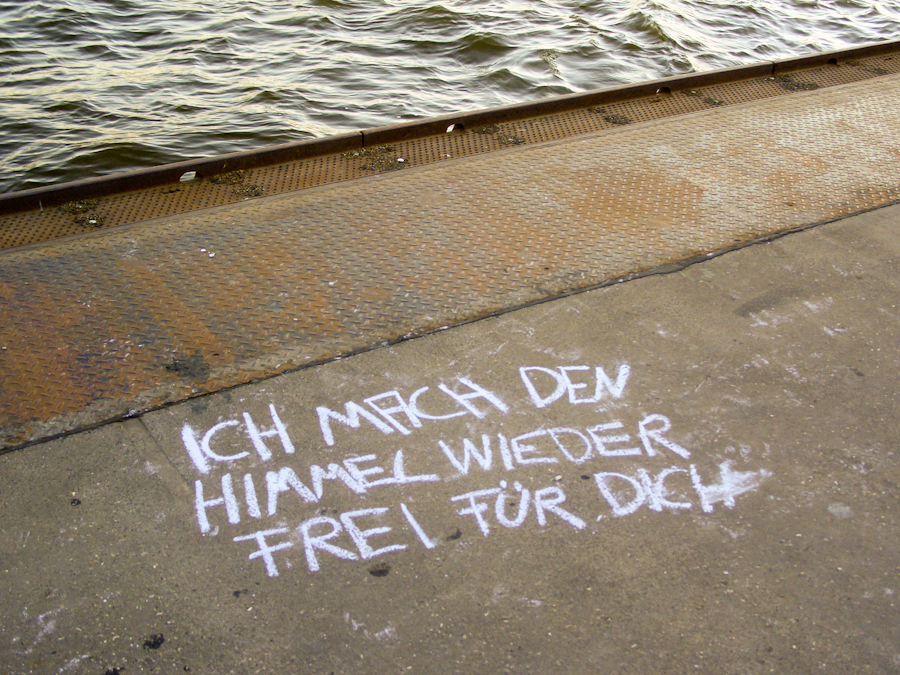 ICH MACH DEN
HIMMEL WIEDER
FREI FÜR DICH